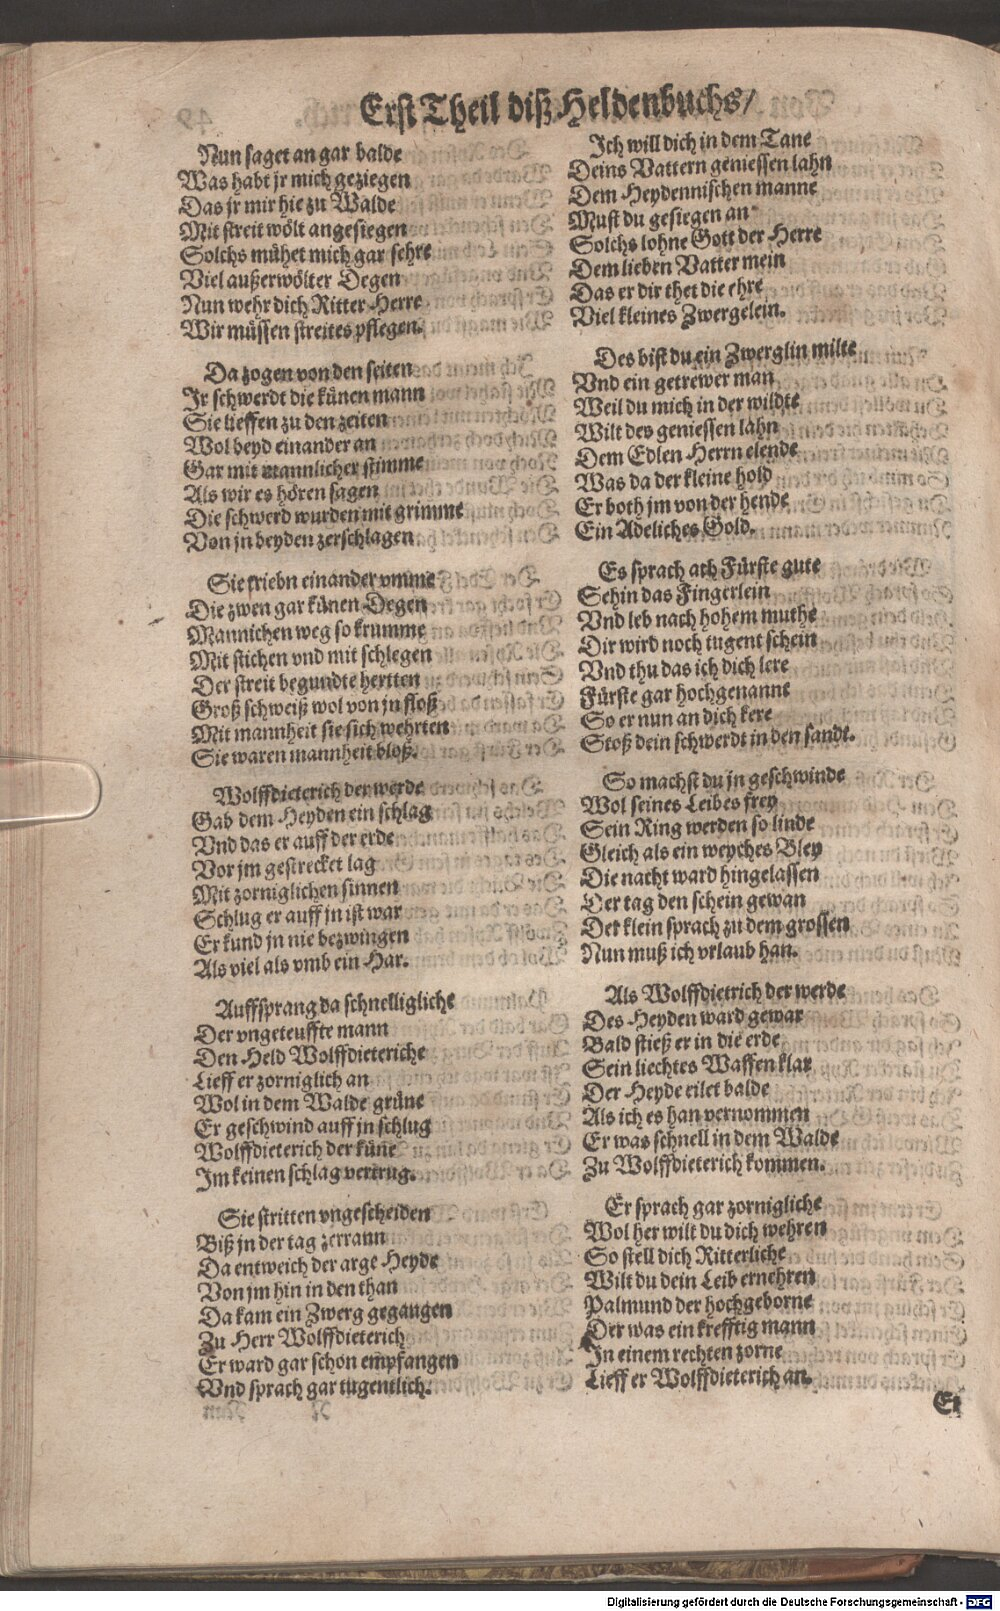 Erst Theil diß Heldenbuchs/
Nun saget an gar balde
Was habt jr mich geziegen
Das jr mir hie zu Walde
Mit streit wölt angesiegen
Solchs mühet mich gar sehre
Viel außerwölter Degen
Nun wehr dich Ritter Herre
Wir müssen streites pflegen.
Da zogen von den seiten
Ir schwerdt die künen mann
Sie lieffen zu den zeiten
Wol beyd einander an
Gar mit mannlicher stimme
Als wir es hören sagen
Die schwerd wurden mit grimme
Von jn beyden zerschlagen
Sie triebn einander vmme
Die zwen gar künen Degen
Mannichen weg so krumme
Mit stichen vnd mit schlegen
Der streit begundte hertten
Groß schweiß wol von jn floß
Mit mannheit sie sich wehrten
Sie waren mannheit bloß.
Wolffdieterich der werde
Gab dem Heyden ein schlag
Vnd das er auff der erde
Vor jm gestrecket lag
Mit zorniglichen sinnen
Schlug er auff jn ist war
Er kund jn nie bezwingen
Als viel als vmb ein Har.
Auffsprang da schnelligliche
Der vngeteuffte mann
Den Held Wolffdieteriche
Lieff er zorniglich an
Wol in dem Walde grüne
Er geschwind auff jn schlug
Wolffdieterich der küne
Im keinen schlag vertrug.
Sie stritten vngescheiden
Biß jn der tag zerrann
Da entweich der arge Heyde
Von jm hin in den than
Da kam ein Zwerg gegangen
Zu Herr Wolffdieterich
Er ward gar schon empfangen
Vnd sprach gar tugentlich.
Ich will dich in dem Tane
Deins Vattern geniessen lahn
Dem Heydennischen manne
Must du gesiegen an
Solchs lohne Gott der Herre
Dem lieben Vatter mein
Das er dir thet die ehre
Viel kleines Zwergelein.
Des bist du ein Zwerglin milte
Vnd ein getrewer man
Weil du mich in der wildte
Wilt des geniessen lahn
Dem Edlen Herrn elende
Was da der kleine hold
Er both jm von der hende
Ein Adeliches Gold.
Es sprach ach Fürste gute
Sehin das Fingerlein
Vnd leb nach hohem muthe
Dir wird noch tugent schein
Vnd thu das ich dich lere
Fürste gar hochgenannt
So er nun an dich kere
Stoß dein schwerdt in den sandt.
So machst du jn geschwinde
Wol seines Leibes frey
Sein Ring werden so linde
Gleich als ein weyches Bley
Die nacht ward hingelassen
Der tag den schein gewan
Der klein sprach zu dem grossen
Nun muß ich vrlaub han.
Als Wolffdietrich der werde
Des Heyden ward gewar
Bald stieß er in die erde
Sein liechtes Waffen klar
Der Heyde eilet balde
Als ich es han vernommen
Er was schnell in dem Walde
Zu Wolffdieterich kommen.
Er sprach gar zornigliche
Wol her wilt du dich wehren
So stell dich Ritterliche
Wilt du dein Leib ernehren
Palmund der hochgeborne
Der was ein krefftig mann
In einem rechten zorne
Lieff er Wolffdieterich an.
Digitalisierung gefördert durch die Deutsche Forschungsgemeinschaft - DFG